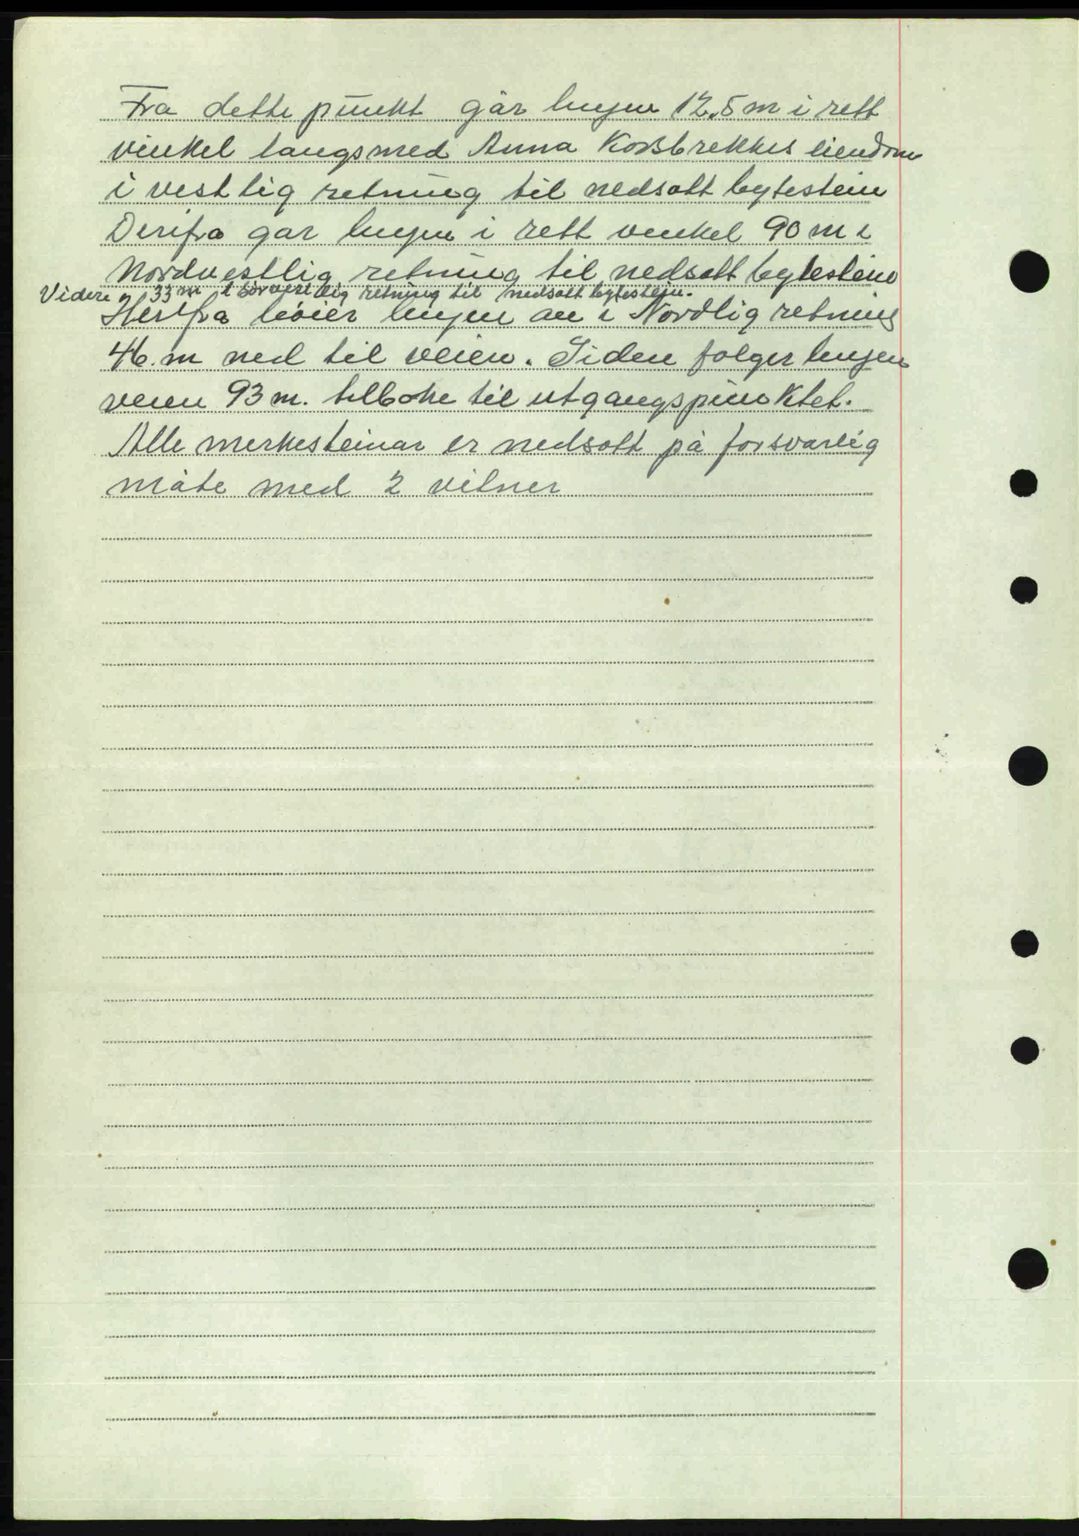 Fra dette punkt går linjen 12,5 m i rett
vinkel langsmed Anna Korsbrekkes eiendom
i vestlig retning til nedsatt bytestein
Derifra går linjen i rett vinkel 90 m i
Nordvestlig retning til nedsatt bytestein
Videre 33 m i Sørvestlig retning til nedsatt bytestein.
Herifra bøier linjen av i Nordlig retning
46. m ned til veien. Siden følger linjen
veien 93 m. tilbake til utgangspunktet.
Alle merkesteinar er nedsatt på forsvarlig
måte med 2 vitner